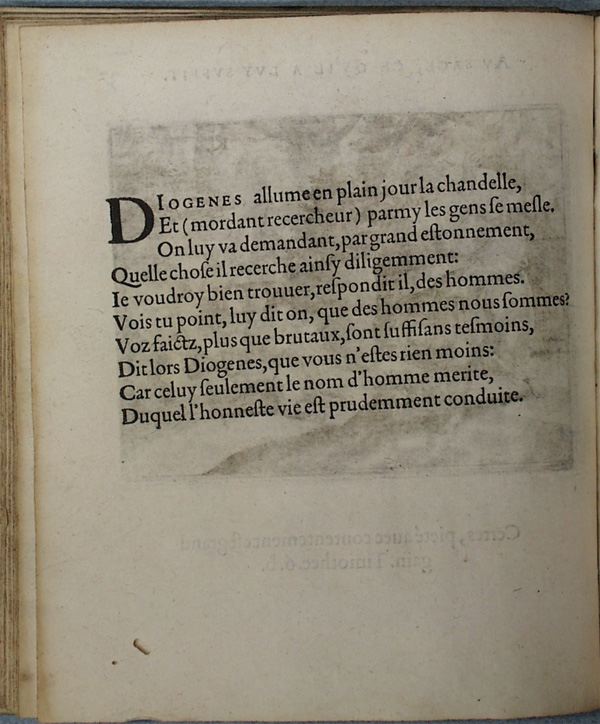 DIOGENES allume en plain jour la chandelle,
Et (mordant recercheur) parmy les gens ſe meſle.
On luy va demandant, par grand eſtonnement,
Quelle choſe il recerche ainſy diligemment:
Ie voudroy bien trouuer, reſpondit il, des hommes.
Vois tu point, luy dit on, que des hommes nous ſommes?
Voz faictz, plus que brutaux, ſont ſuffiſans teſmoins,
Dit lors Diogenes, que vous n'eſtes rien moins:
Car celuy ſeulement le nom d'homme merite,
Duquel l'honneſte vie eſt prudemment conduite.